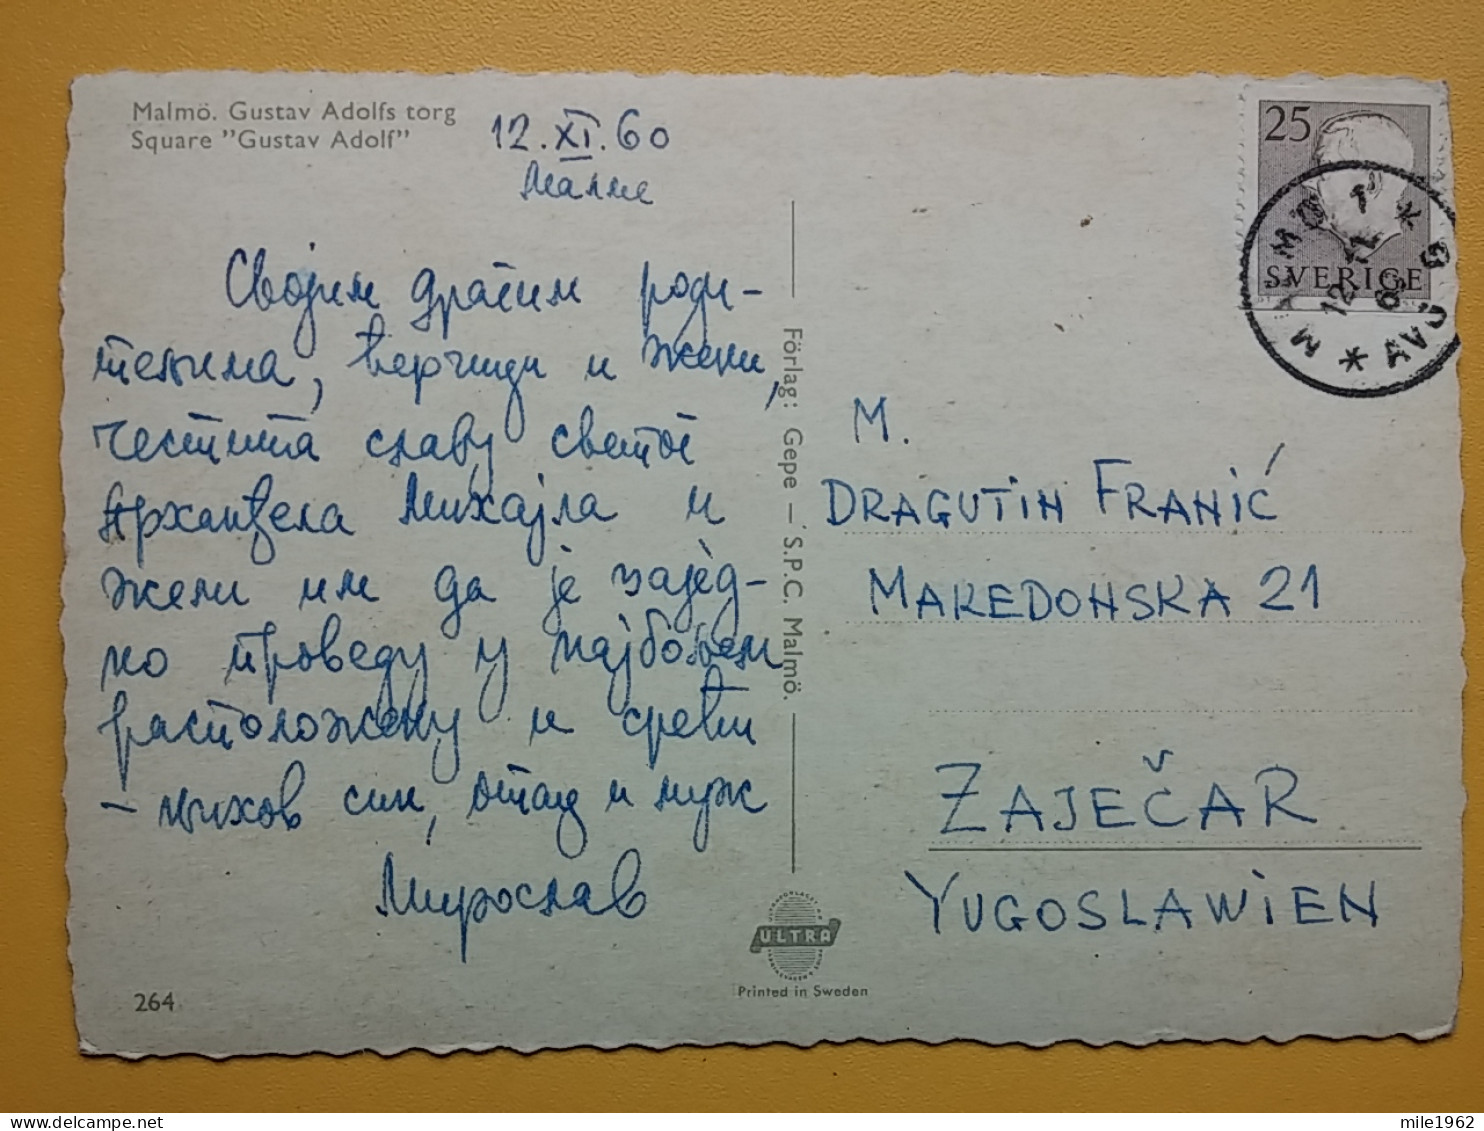 Malmö. Gustav Adolfs torg
Square "Gustav Adolf"
12.XI.60
Малме
Својим драгим роди-
тељима, ћерчици и жени,
честита славу светог
Архангела Михајла и
жели им да је зајед-
но проведу у најбољем
расположењу и срећи
– њихов син, отац и муж
Мирослав
264
Förlag: Gepe – S.P.C. Malmö.
ULTRA
Printed in Sweden
25
SVERIGE
MALMÖ 1
12 11
60
AVG
M.
DRAGUTIN FRANIĆ
MAKEDONSKA 21
ZAJEČAR
YUGOSLAWIEN
mile1962